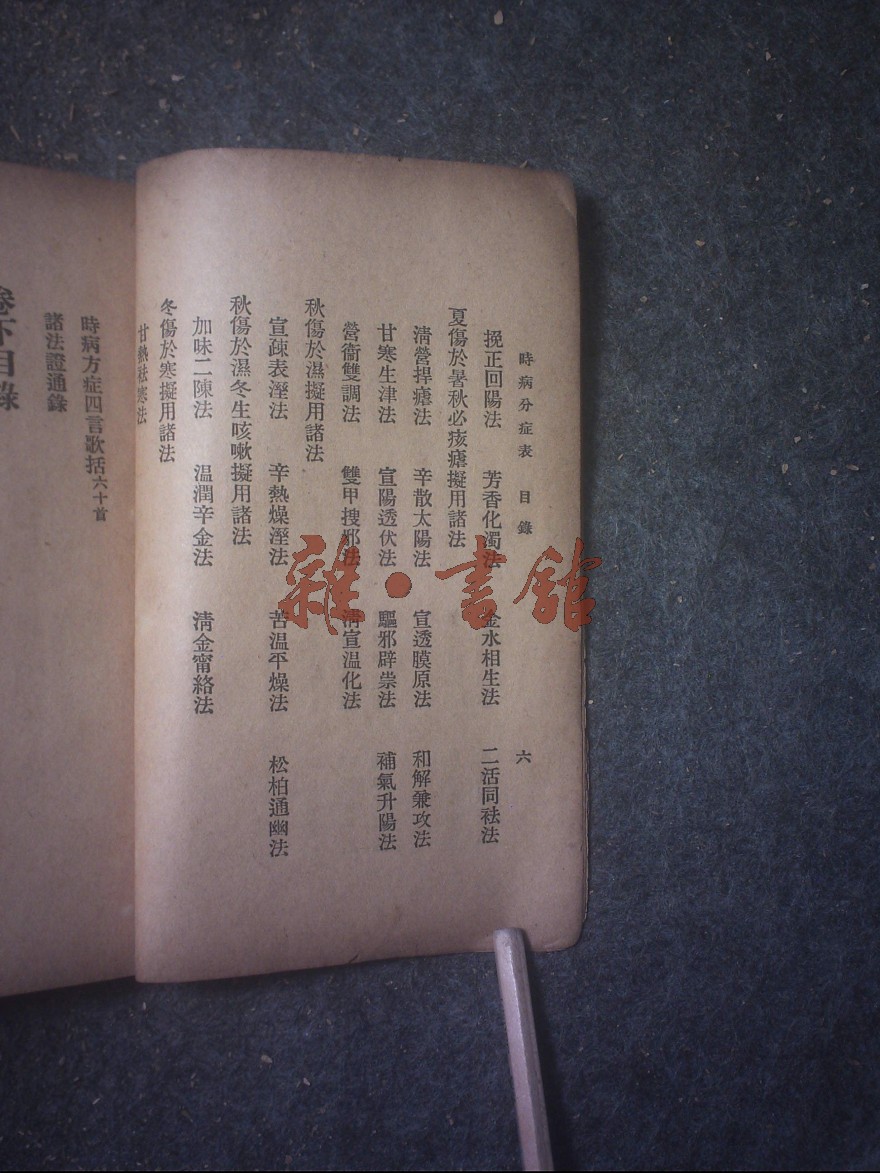 時病分症表　目錄　六
挽正回陽法　芳香化濁法　金水相生法　二活同祛法
夏傷於暑秋必痎瘧擬用諸法
清營捍瘧法　辛散太陽法　宣透膜原法　和解兼攻法
甘寒生津法　宣陽透伏法　驅邪辟祟法　補氣升陽法
營衞雙調法　雙甲搜邪法　清宣温化法
秋傷於濕擬用諸法
宣疎表溼法　辛熱燥溼法　苦温平燥法　松柏通幽法
秋傷於濕冬生咳嗽擬用諸法
加味二陳法　温潤辛金法　清金甯絡法
冬傷於寒擬用諸法
甘熱祛寒法
時病方症四言歌括六十首
諸法證通錄
卷下目錄
雜·書館